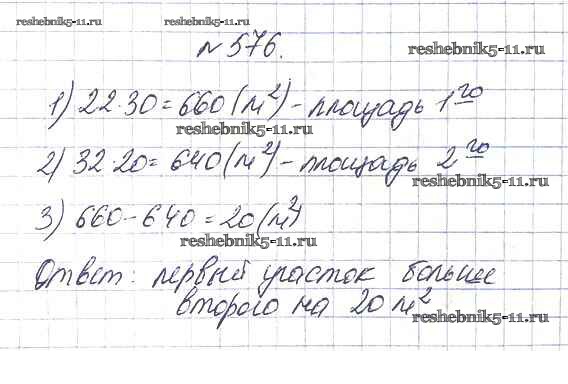 reshebnik5-11.ru reshebnik5-11.ru
№576.
reshebnik5-11.ru
1) 22·30=660(м²)-площадь 1го
reshebnik5-11.ru
2) 32·20=640(м²)-площадь 2го
reshebnik5-11.ru
3) 660-640=20(м²)
reshebnik5-11.ru
Ответ: первый участок больше
второго на 20 м²
reshebnik5-11.ru